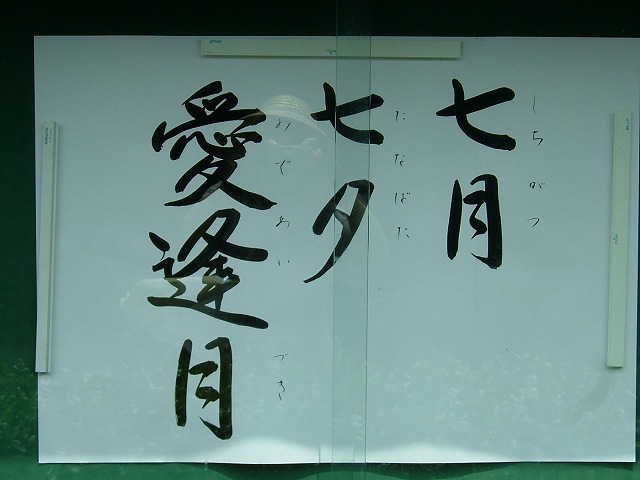 七月
しちがつ
七夕
たなばた
愛逢月
めであいづき